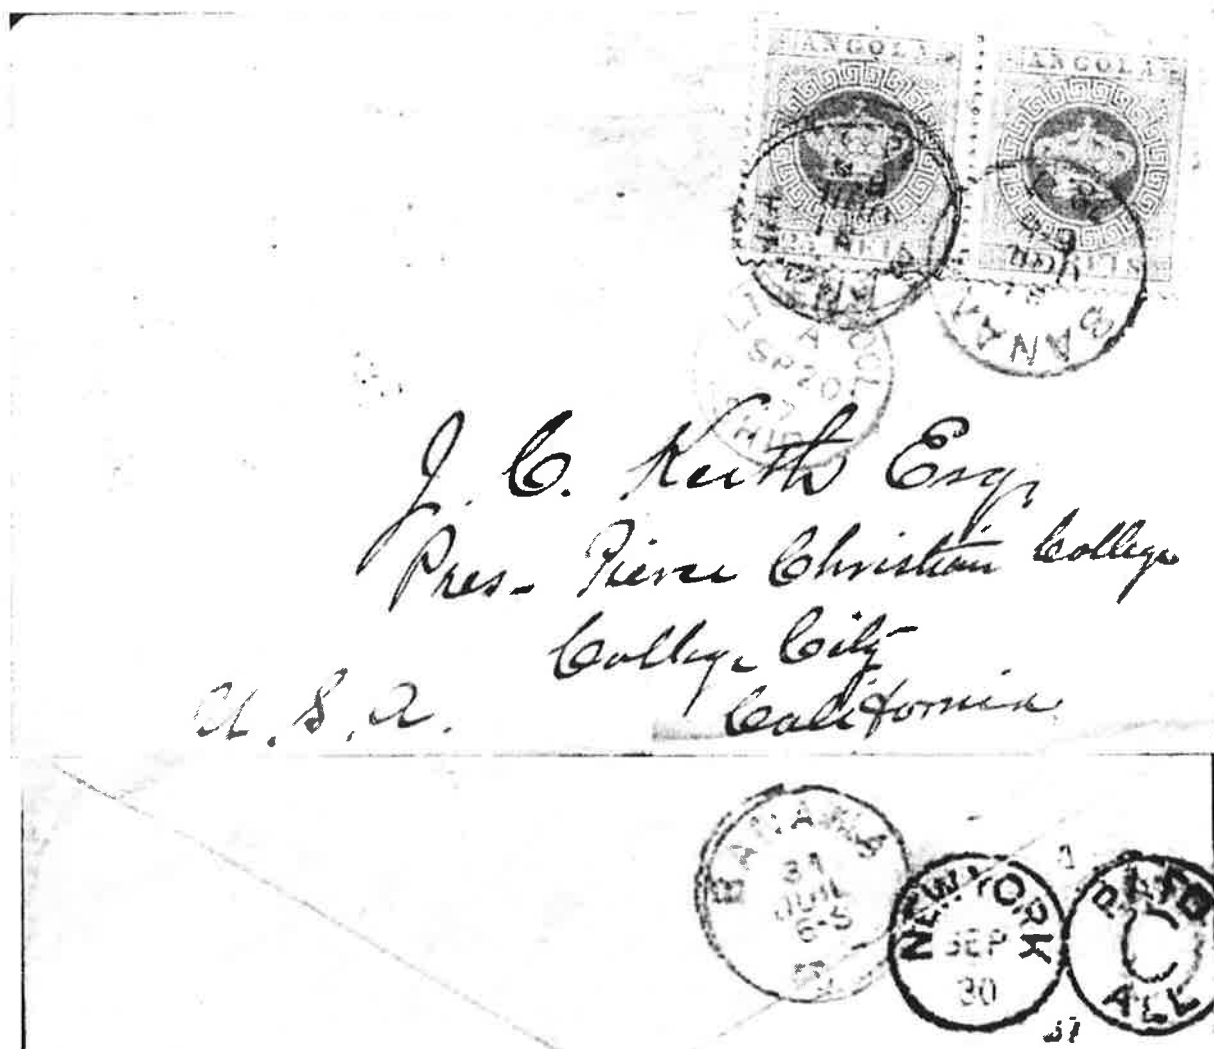 ANGOLA ANGOLA
25 REIS REIS
BANANA
SP 20
J. C. Keith Esq,
Pres- Pierce Christian College
College City
California
U.S.A.
BANANA
31
JUIL
6-S
NEW YORK
SEP
30
PAID
C
ALL